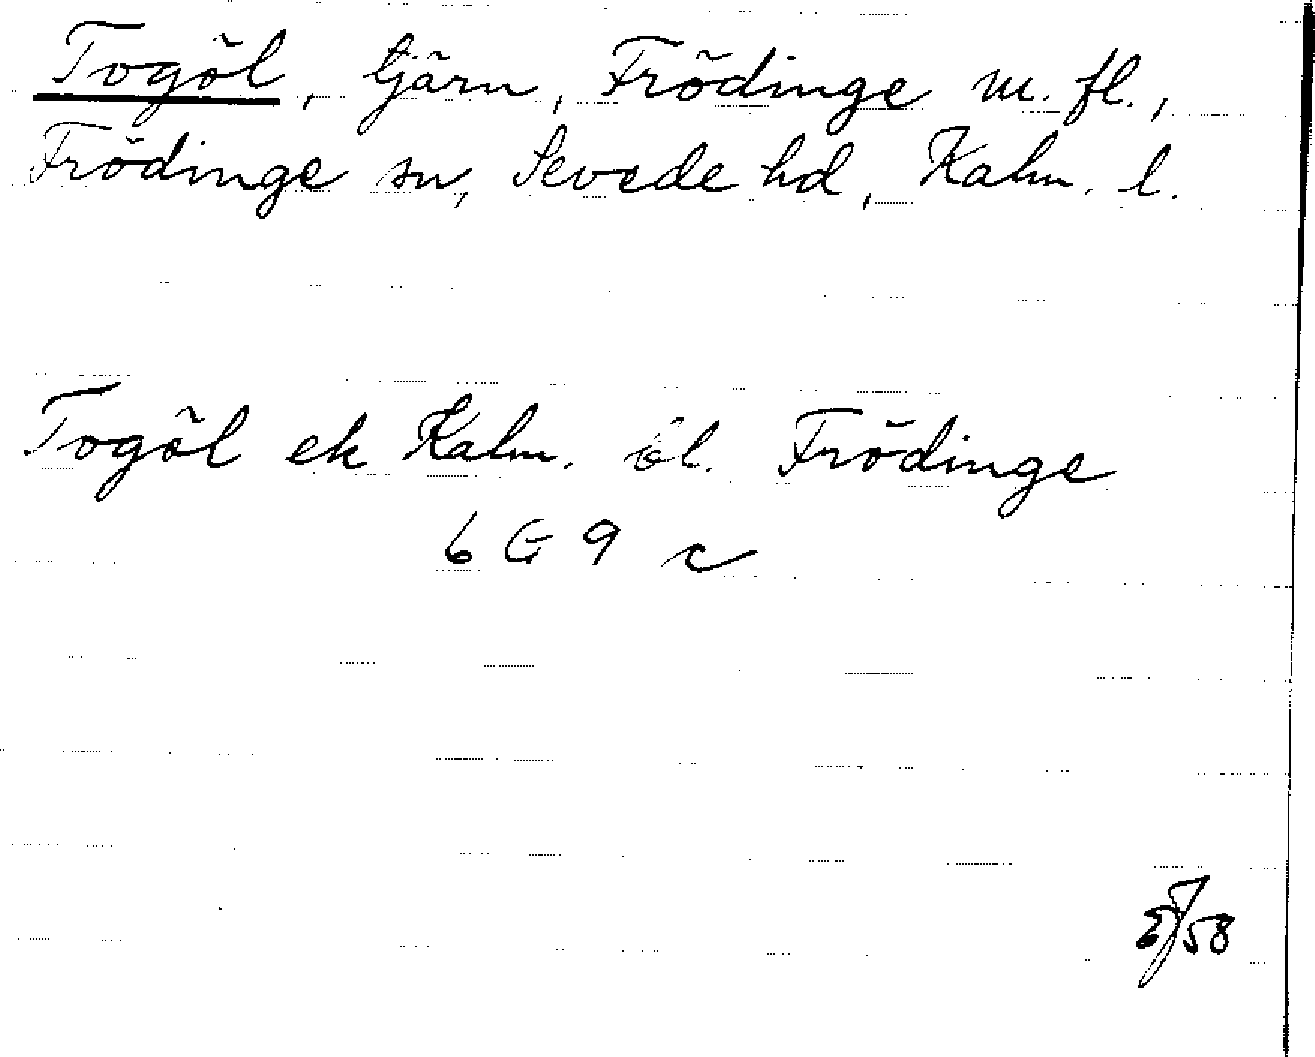 Togöl, tjärn, Frödinge m. fl.,
Frödinge sn, Sevede hd, Kalm. l.
Togöl ek Kalm. bl. Frödinge
6 G 9 c